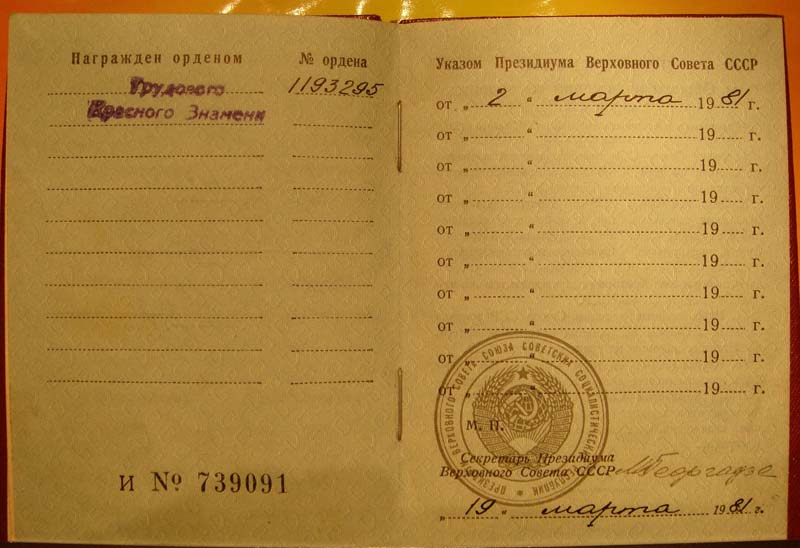 Награжден орденом № ордена
Трудового 1193295
Красного Знамени
И № 739091
Указом Президиума Верховного Совета СССР
от „ 2 “ марта 1981 г.
от „ “ 19 г.
от „ “ 19 г.
от „ “ 19 г.
от „ “ 19 г.
от „ “ 19 г.
от „ “ 19 г.
от „ “ 19 г.
от „ “ 19 г.
от „ “ 19 г.
ПРЕЗИДИУМ ВЕРХОВНОГО СОВЕТА СОЮЗА СОВЕТСКИХ СОЦИАЛИСТИЧЕСКИХ РЕСПУБЛИК
М. П.
Секретарь Президиума
Верховного Совета СССР МГеоргадзе
„ 19 “ марта 1981 г.